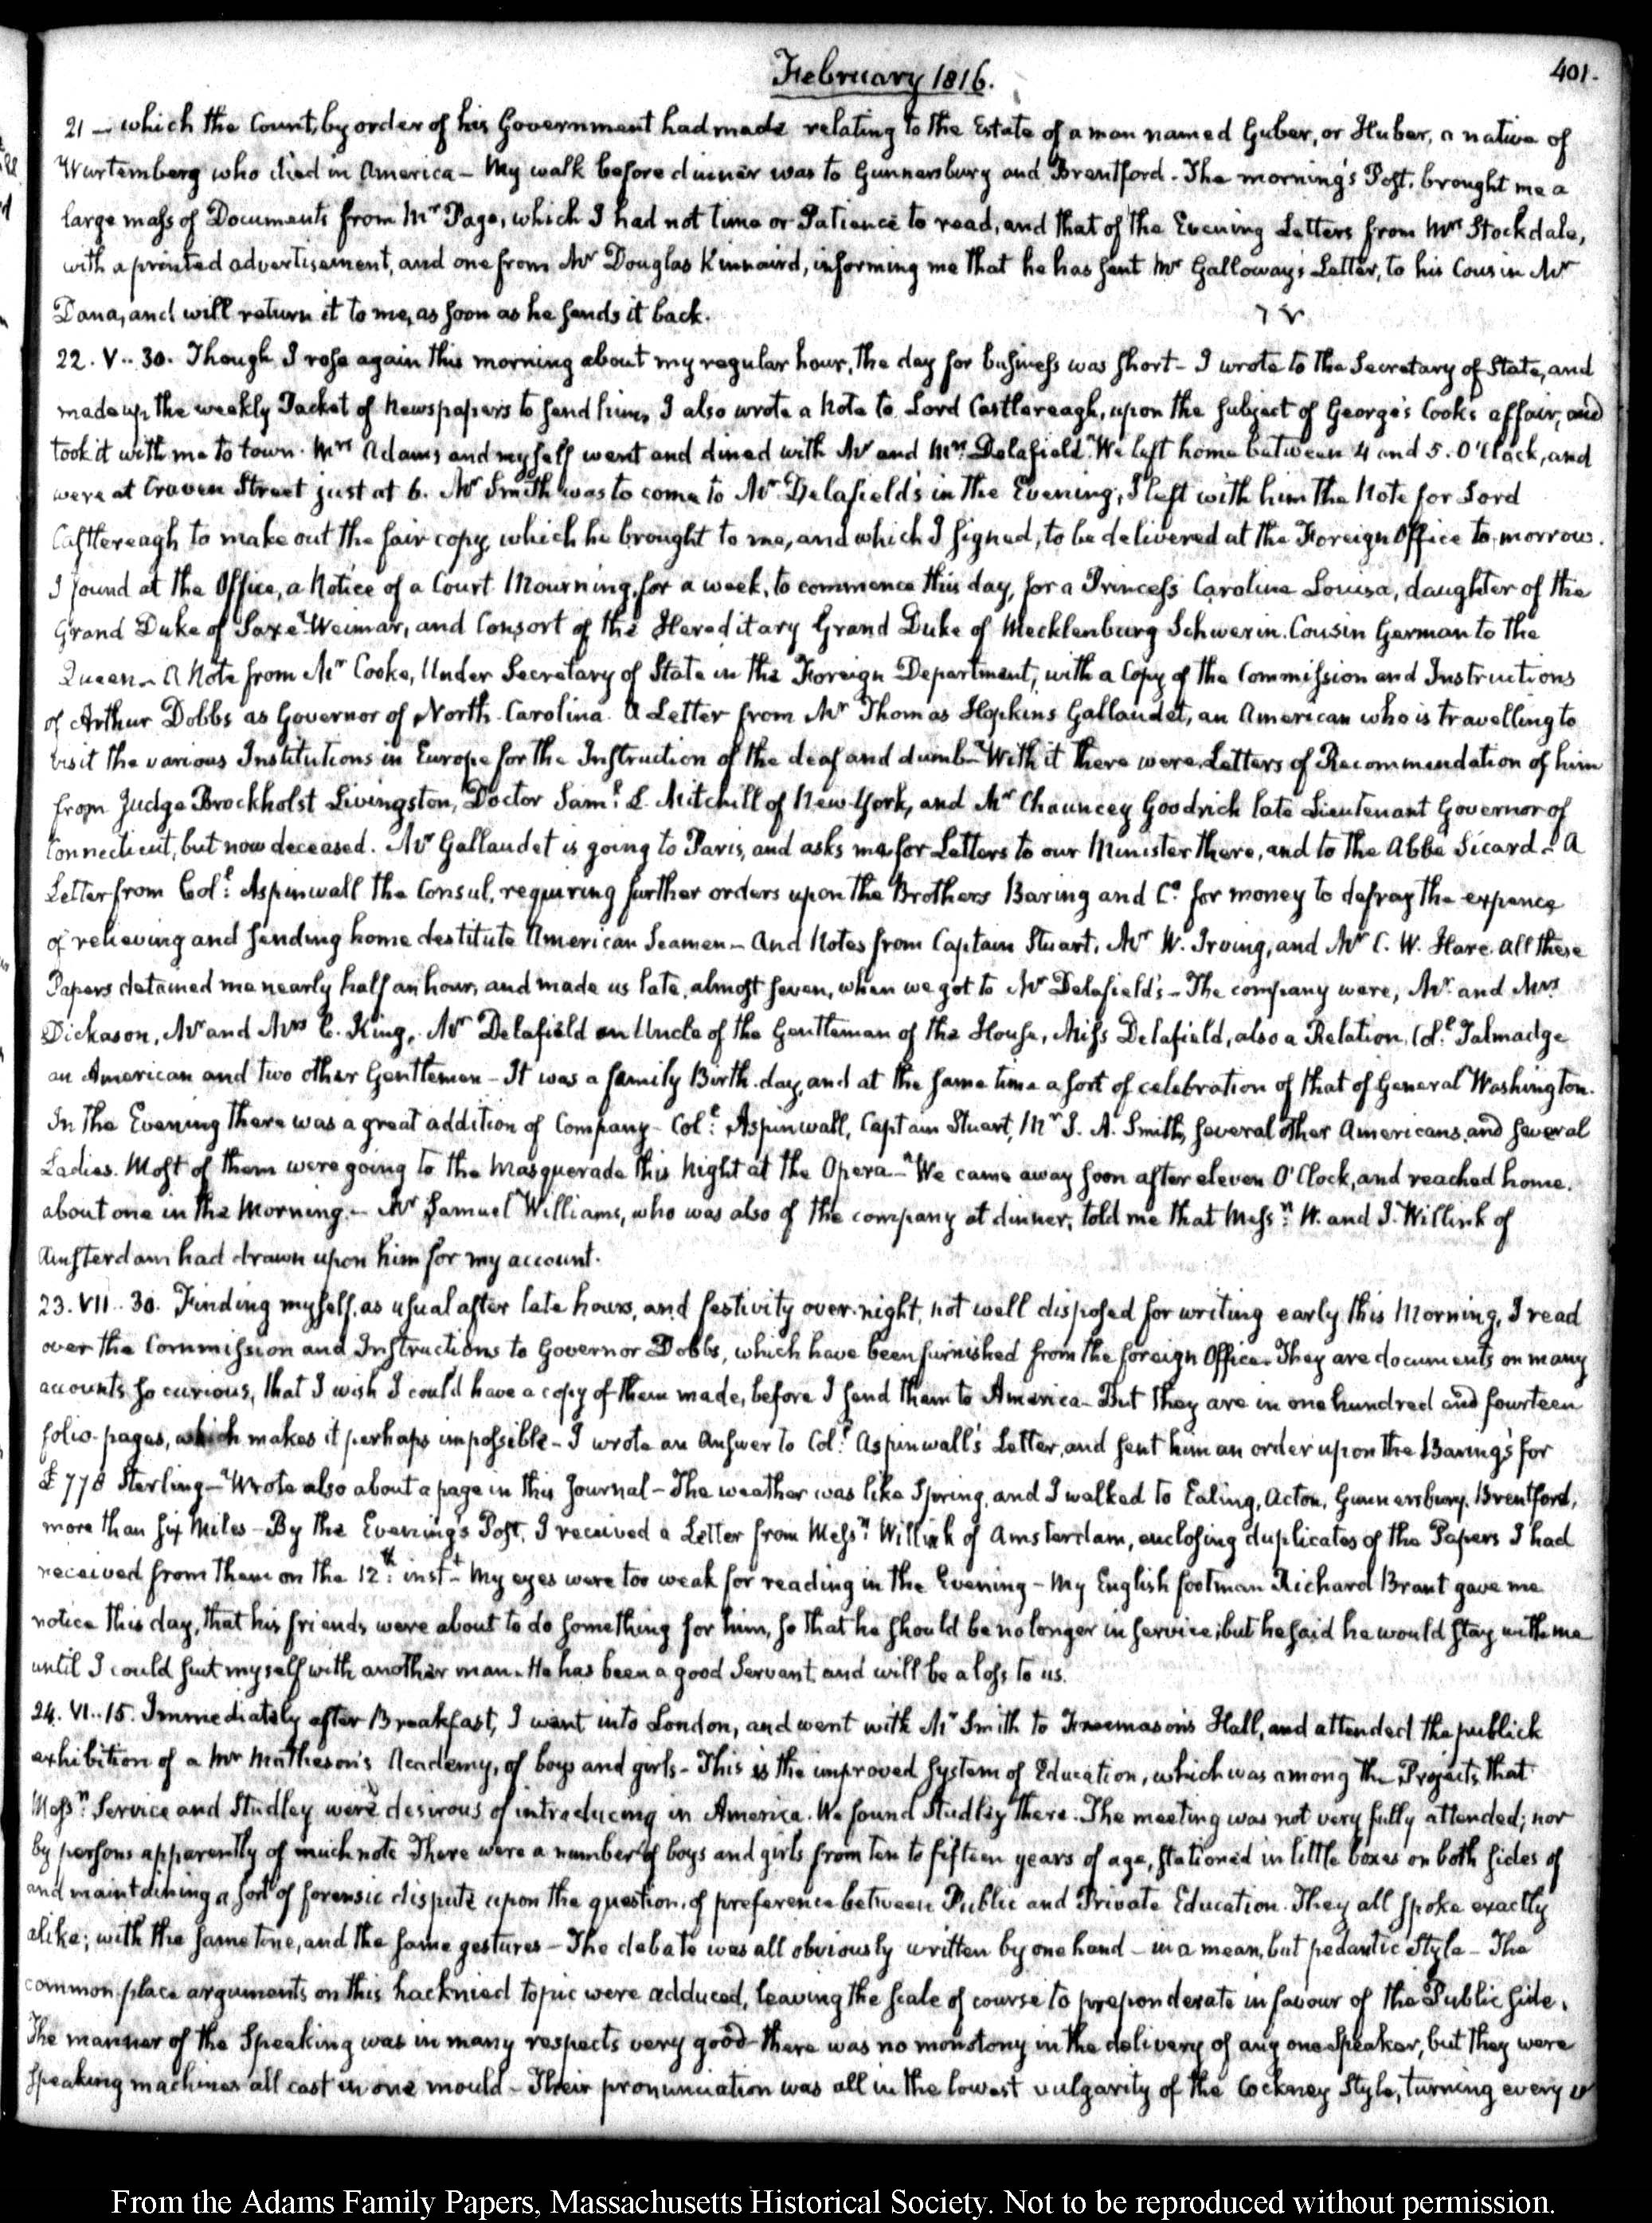 February 1816.
401.
21 — which the Count, by order of his Government had made relating to the Estate of a man named Guber, or Huber, a native of
Wurtemberg who died in America — My walk before dinner was to Gunnersbury and Brentford. The morning's Post, brought me a
large mass of Documents from Mr Page, which I had not time or Patience to read, and that of the Evening Letters from Mrs Stockdale,
with a printed advertisement, and one from Mr Douglas Kinnaird, informing me that he has sent Mr Galloway's Letter, to his Cousin Mr
Dana, and will return it to me, as soon as he sends it back.
22. V.. 30. Though I rose again this morning about my regular hour, the day for business was short — I wrote to the Secretary of State, and
made up the weekly Packet of Newspapers to send him, I also wrote a Note to Lord Castlereagh, upon the subject of George's Cook's affair, and
took it with me to town. Mrs Adams and myself went and dined with Mr and Mrs Delafield. We left home between 4 and 5. O'Clock, and
were at Craven Street just at 6. Mr Smith was to come to Mr Delafield's in the Evening; I left with him the Note for Lord
Castlereagh to make out the fair copy, which he brought to me, and which I signed, to be delivered at the Foreign Office to-morrow.
I found at the Office, a Notice of a Court Mourning, for a week, to commence this day, for a Princess Caroline Louisa, daughter of the
Grand Duke of Saxe-Weimar, and Consort of the Hereditary Grand Duke of Mecklenburg Schwerin. Cousin German to the
Queen — A Note from Mr Cooke, Under Secretary of State in the Foreign Department, with a Copy of the Commission and Instructions
of Arthur Dobbs as Governor of North-Carolina. A Letter from Mr Thomas Hopkins Gallaudet, an American who is travelling to
visit the various Institutions in Europe for the Instruction of the deaf and dumb — With it there were Letters of Recommendation of him
from Judge Brockholst Livingston, Doctor Saml L. Mitchill of New-York, and Mr Chauncey Goodrich late Lieutenant Governor of
Connecticut, but now deceased. Mr Gallaudet is going to Paris, and asks me for Letters to our Minister there, and to the Abbé Sicard — A
Letter from Coll Aspinwall the Consul, requiring further orders upon the Brothers Baring and Co for money to defray the expence
of relieving and sending home destitute American Seamen — And Notes from Captain Stuart, Mr W. Irving, and Mr C. W. Hare. All these
Papers detained me nearly half an hour, and made us late, almost seven, when we got to Mr Delafield's — The company were, Mr and Mrs
Dickason, Mr and Mrs C. King, Mr Delafield an Uncle of the Gentleman of the House, Miss Delafield, also a Relation, Coll Talmadge
an American and two other Gentlemen — It was a family Birth-day, and at the same time a sort of celebration of that of General Washington.
In the Evening there was a great addition of Company — Coll Aspinwall, Captain Stuart, Mr J. A. Smith, several other Americans, and several
Ladies. Most of them were going to the Masquerade this Night at the Opera — We came away soon after eleven O'Clock, and reached home.
about one in the Morning — Mr Samuel Williams, who was also of the company at dinner, told me that Messrs W. and J. Willink of
Amsterdam had drawn upon him for my account.
23. VII.. 30. Finding myself, as usual after late hours, and festivity over-night, not well disposed for writing early this Morning, I read
over the Commission and Instructions to Governor Dobbs, which have been furnished from the foreign Office. They are documents on many
accounts so curious, that I wish I could have a copy of them made, before I send them to America — But they are in one hundred and fourteen
folio-pages, which makes it perhaps impossible — I wrote an Answer to Coll Aspinwall's Letter, and sent him an order upon the Baring's for
£778 Sterling — Wrote also about a page in this Journal — The weather was like Spring, and I walked to Ealing, Acton, Gunnersbury, Brentford,
more than six Miles — By the Evening's Post, I received a Letter from Messrs Willink of Amsterdam, enclosing duplicates of the Papers I had
received from them on the 12th inst — My eyes were too weak for reading in the Evening — My English footman Richard Brant gave me
notice this day, that his friends were about to do something for him, so that he should be no longer in service; but he said he would stay with me
until I could suit myself with another man. He has been a good Servant and will be a loss to us.
24. VI.. 15. Immediately after Breakfast, I went into London, and went with Mr Smith to Freemason's Hall, and attended the publick
exhibition of a Mr Matheson's Academy, of boys and girls — This is the improved System of Education, which was among the Projects that
Messrs Service and Studley were desirous of introducing in America. We found Studley there. The meeting was not very fully attended; nor
by persons apparently of much note There were a number of boys and girls from ten to fifteen years of age, stationed in little boxes on both sides of
and maintaining a sort of forensic dispute upon the question, of preference between Public and Private Education. They all spoke exactly
alike; with the same tone, and the same gestures — The debate was all obviously written by one hand — in a mean, but pedantic style — The
common-place arguments on this hacknied topic were adduced, leaving the scale of course to preponderate in favour of the Public side.
The manner of the Speaking was in many respects very good there was no monotony in the delivery of any one speaker, but they were
speaking machines all cast in one mould — Their pronunciation was all in the lowest vulgarity of the Cockney Style, turning every v
From the Adams Family Papers, Massachusetts Historical Society. Not to be reproduced without permission.